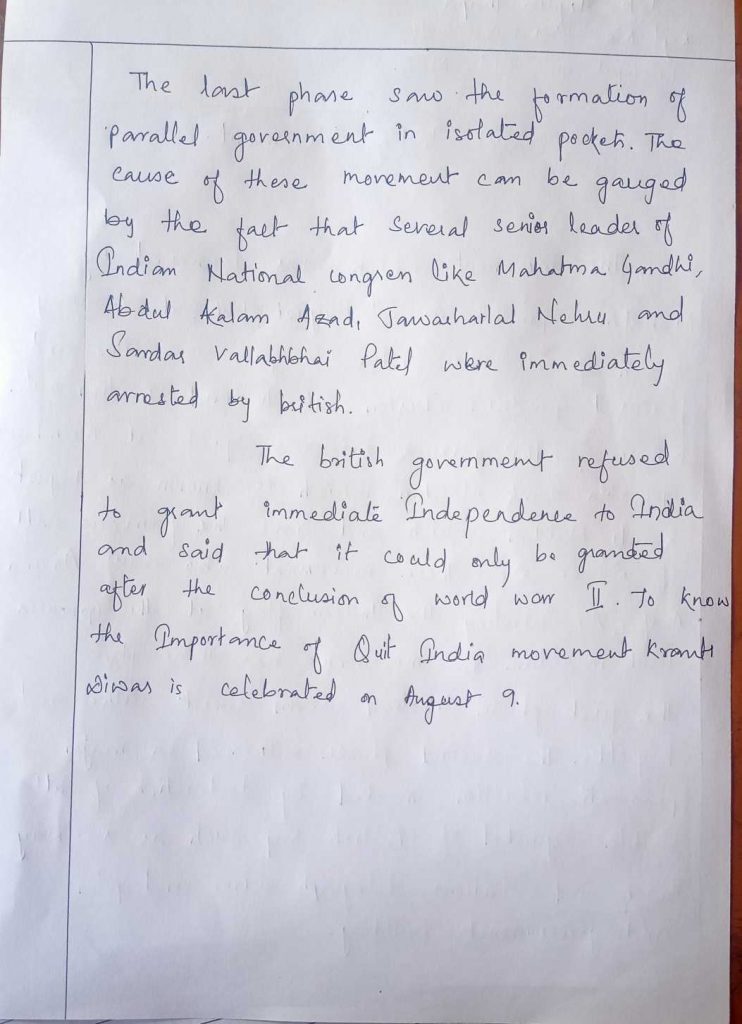 The last phase saw the formation of
parallel government in isolated pockets. The
cause of these movement can be gauged
by the fact that several senior leader of
Indian National congress like Mahatma Gandhi,
Abdul Kalam Azad, Jawaharlal Nehru and
Sardar Vallabhbhai Patel were immediately
arrested by british.
The british government refused
to grant immediate Independence to India
and said that it could only be granded
after the conclusion of world warr II. To know
the Importance of Quit India movement Kranti
Diwas is celebrated on August 9.